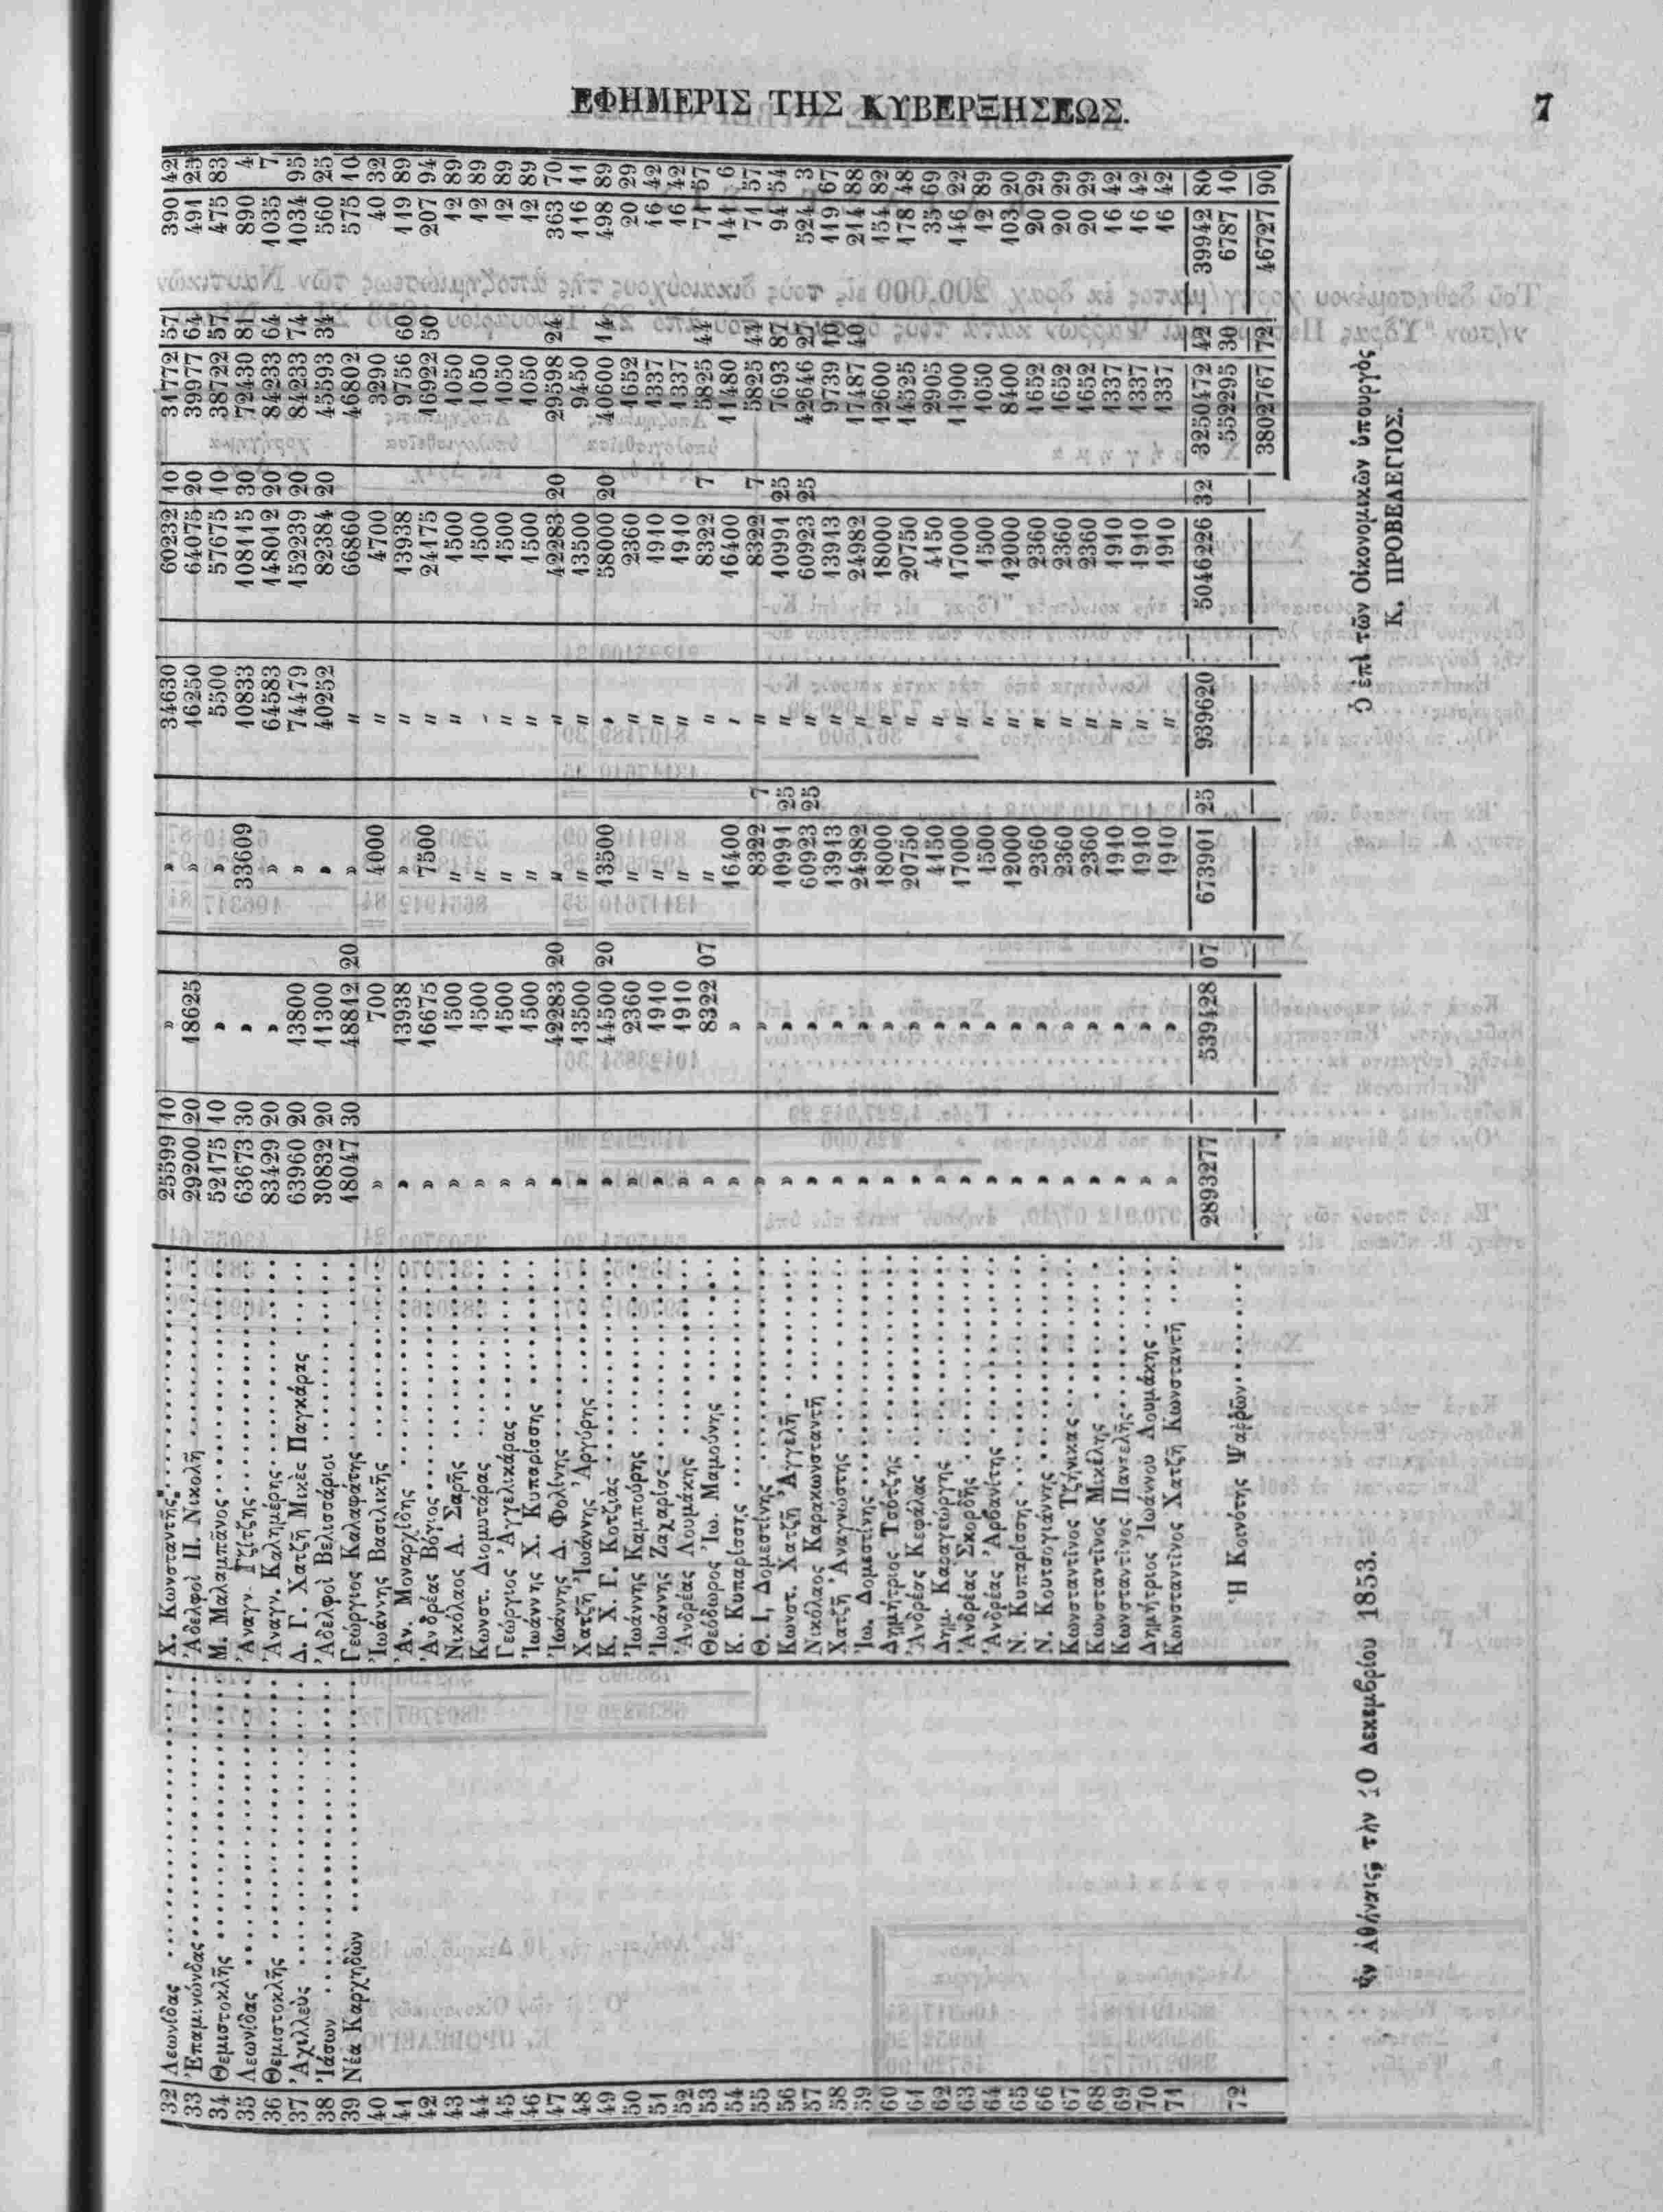 ΕΦΗΜΕΡΙΣ ΤΗΣ ΚΥΒΕΡΞΗΣΕΩΣ.
7
32 Λεωνίδας Χ. Κωνσταντῆς 25599 10 » » 34630 60232 10 31772 57 390 42
33 Ἐπαμινώνδας Ἀδελφοὶ Π. Νικολῆ 29200 20 18625 » 16250 64075 20 39977 64 491 25
34 Θεμιστοκλῆς Μ. Μαλαμπάνος 52175 10 » » 5500 57675 10 38722 57 475 83
35 Λεωνίδας Ἀναγν. Τζίτζης 63673 30 » 33609 10833 108115 30 72430 81 890 4
36 Θεμιστοκλῆς Ἀναγν. Καλημέρης 83429 20 » » 64583 148012 20 84233 64 1035 7
37 Ἀχιλλεὺς Δ. Γ. Χατζῆ Μικὲς Παγκάρας 63960 20 13800 » 74479 152239 20 84233 74 1034 95
38 Ἰάσων Ἀδελφοὶ Βελισσάριοι 30832 20 11300 » 40252 82384 20 45593 34 560 25
39 Νέα Καρχηδὼν Γεώργιος Καλαφάτης 18047 30 48812 20 » " 66860 46802 575 10
40 Ἰωάννης Βασιλικῆς » 700 4000 " 4700 3290 40 32
41 Ἀν. Μοναρχίδης » 13938 » " 13938 9756 60 119 89
42 Ἀνδρέας Βόγιος » 16675 7500 " 24175 16922 50 207 94
43 Νικόλαος Α. Σαρῆς » 1500 " " 1500 1050 12 89
44 Κωνστ. Διομυτάρας » 1500 " " 1500 1050 12 89
45 Γεώργιος Ἀγγελικάρας » 1500 " " 1500 1050 12 89
46 Ἰωάννης Χ. Κυπαρίσσης » 1500 " " 1500 1050 12 89
47 Ἰωάννης Δ. Φολίνης » 42283 20 " " 42283 20 29598 24 363 70
48 Χατζῆ Ἰωάννης Ἀργύρης » 13500 " " 13500 9450 116 11
49 Κ. Χ. Γ. Κοτζιὰς » 44500 20 13500 " 58000 20 40600 14 498 89
50 Ἰωάννης Καμπούρης » 2360 " " 2360 1652 20 29
51 Ἰωάννης Ζαχαρίας » 1910 " " 1910 1337 16 42
52 Ἀνδρέας Λουμάκης » 1910 " " 1910 1337 16 42
53 Θεόδωρος Ἰω. Μαμούνης » 8322 07 " " 8322 7 5825 44 71 57
54 Κ. Κυπαρίσσης » » 16400 " 16400 11480 141 6
55 Θ. Ι, Δομεστίνης » » 8322 7 " 8322 7 5825 44 71 57
56 Κωνστ. Χατζῆ Ἀγγελῆ » » 10991 25 " 10991 25 7693 87 94 54
57 Νικόλαος Καρακωνσταντῆ » » 60923 25 " 60923 25 42646 27 524 3
58 Χατζῆ Ἀναγνώστης » » 13913 " 13913 9739 10 119 67
59 Ἰω. Δομεστίνης » » 24982 " 24982 17487 40 214 88
60 Δημήτριος Τσότζης » » 18000 " 18000 12600 154 82
61 Ἀνδρέας Κεφάλας » » 20750 " 20750 14525 178 48
62 Δημ. Καραγεώργης » » 4150 " 4150 2905 35 69
63 Ἀνδρέας Σκορδῆς » » 17000 " 17000 11900 146 22
64 Ἀνδρέας Ἀρβανίτης » » 1500 " 1500 1050 12 89
65 Ν. Κυπαρίσης » » 12000 " 12000 8400 103 20
66 Ν. Κουτσογιάννης » » 2360 " 2360 1652 20 29
67 Κωνσταντῖνος Τζήνικας » » 2360 " 2360 1652 20 29
68 Κωνσταντῖνος Μικέλης » » 2360 " 2360 1652 20 29
69 Κωνσταντῖνος Παντελῆς » » 1910 " 1910 1337 16 42
70 Δημήτριος Ἰωάννου Λουμάκης » » 1910 " 1910 1337 16 42
71 Κωνσταντῖνος Χατζῆ Κωνσταντῆ » » 1910 " 1910 1337 16 42
2893277 — 539428 07 673901 25 939620 — 5046226 32 3250472 42 39942 80
72 Ἡ Κοινότης Ψαρῶν 552295 30 6787 10
3802767 72 46727 90
ἐν Ἀθήναις, τὴν 10 Δεκεμβρίου 1853.
Ὁ ἐπὶ τῶν Οἰκονομικῶν ὑπουργὸς
Κ. ΠΡΟΒΕΛΕΓΙΟΣ.